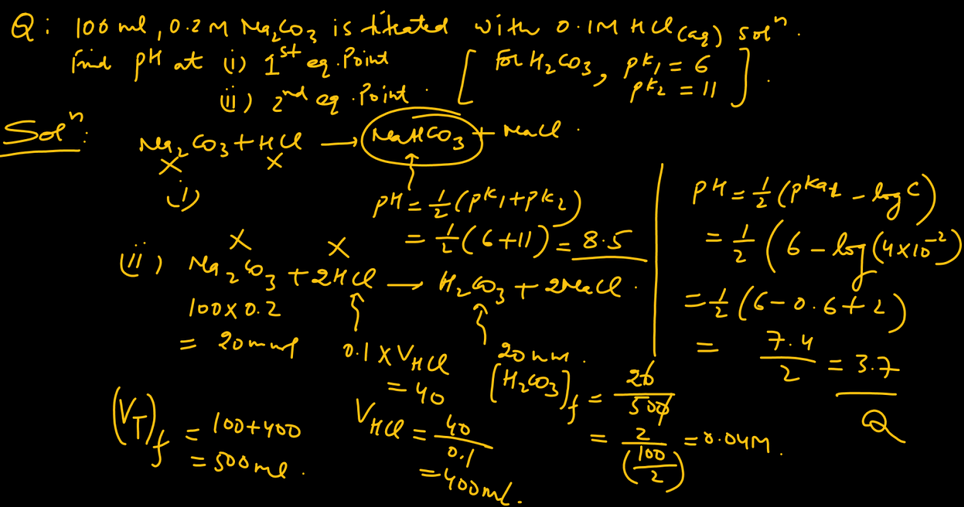 Q: 100 ml, 0.2 M Na₂CO₃ is titrated with 0.1M HCl(aq) solⁿ.
Find pH at (i) 1st eq. Point
(ii) 2nd eq. Point.
[For H₂CO₃, pK₁ = 6
pK₂ = 11].
Solⁿ:
Na₂CO₃ + HCl → NaHCO₃ + NaCl.
x x
(i)
pH = ½(pK₁+pK₂)
= ½(6+11) = 8.5
x x
(ii) Na₂CO₃ + 2HCl → H₂CO₃ + 2NaCl.
100×0.2
= 20mmol
0.1 × V_HCl
= 40
V_HCl = 40/0.1
= 400ml.
20 mm.
[H₂CO₃]f = 20/500
= 2/(100/2) = 0.04M.
(V_T)f = 100+400
= 500ml.
pH = ½(pKa₁ - log C)
= ½(6 - log(4×10⁻²)
= ½(6-0.6+2)
= 7.4/2 = 3.7
Q